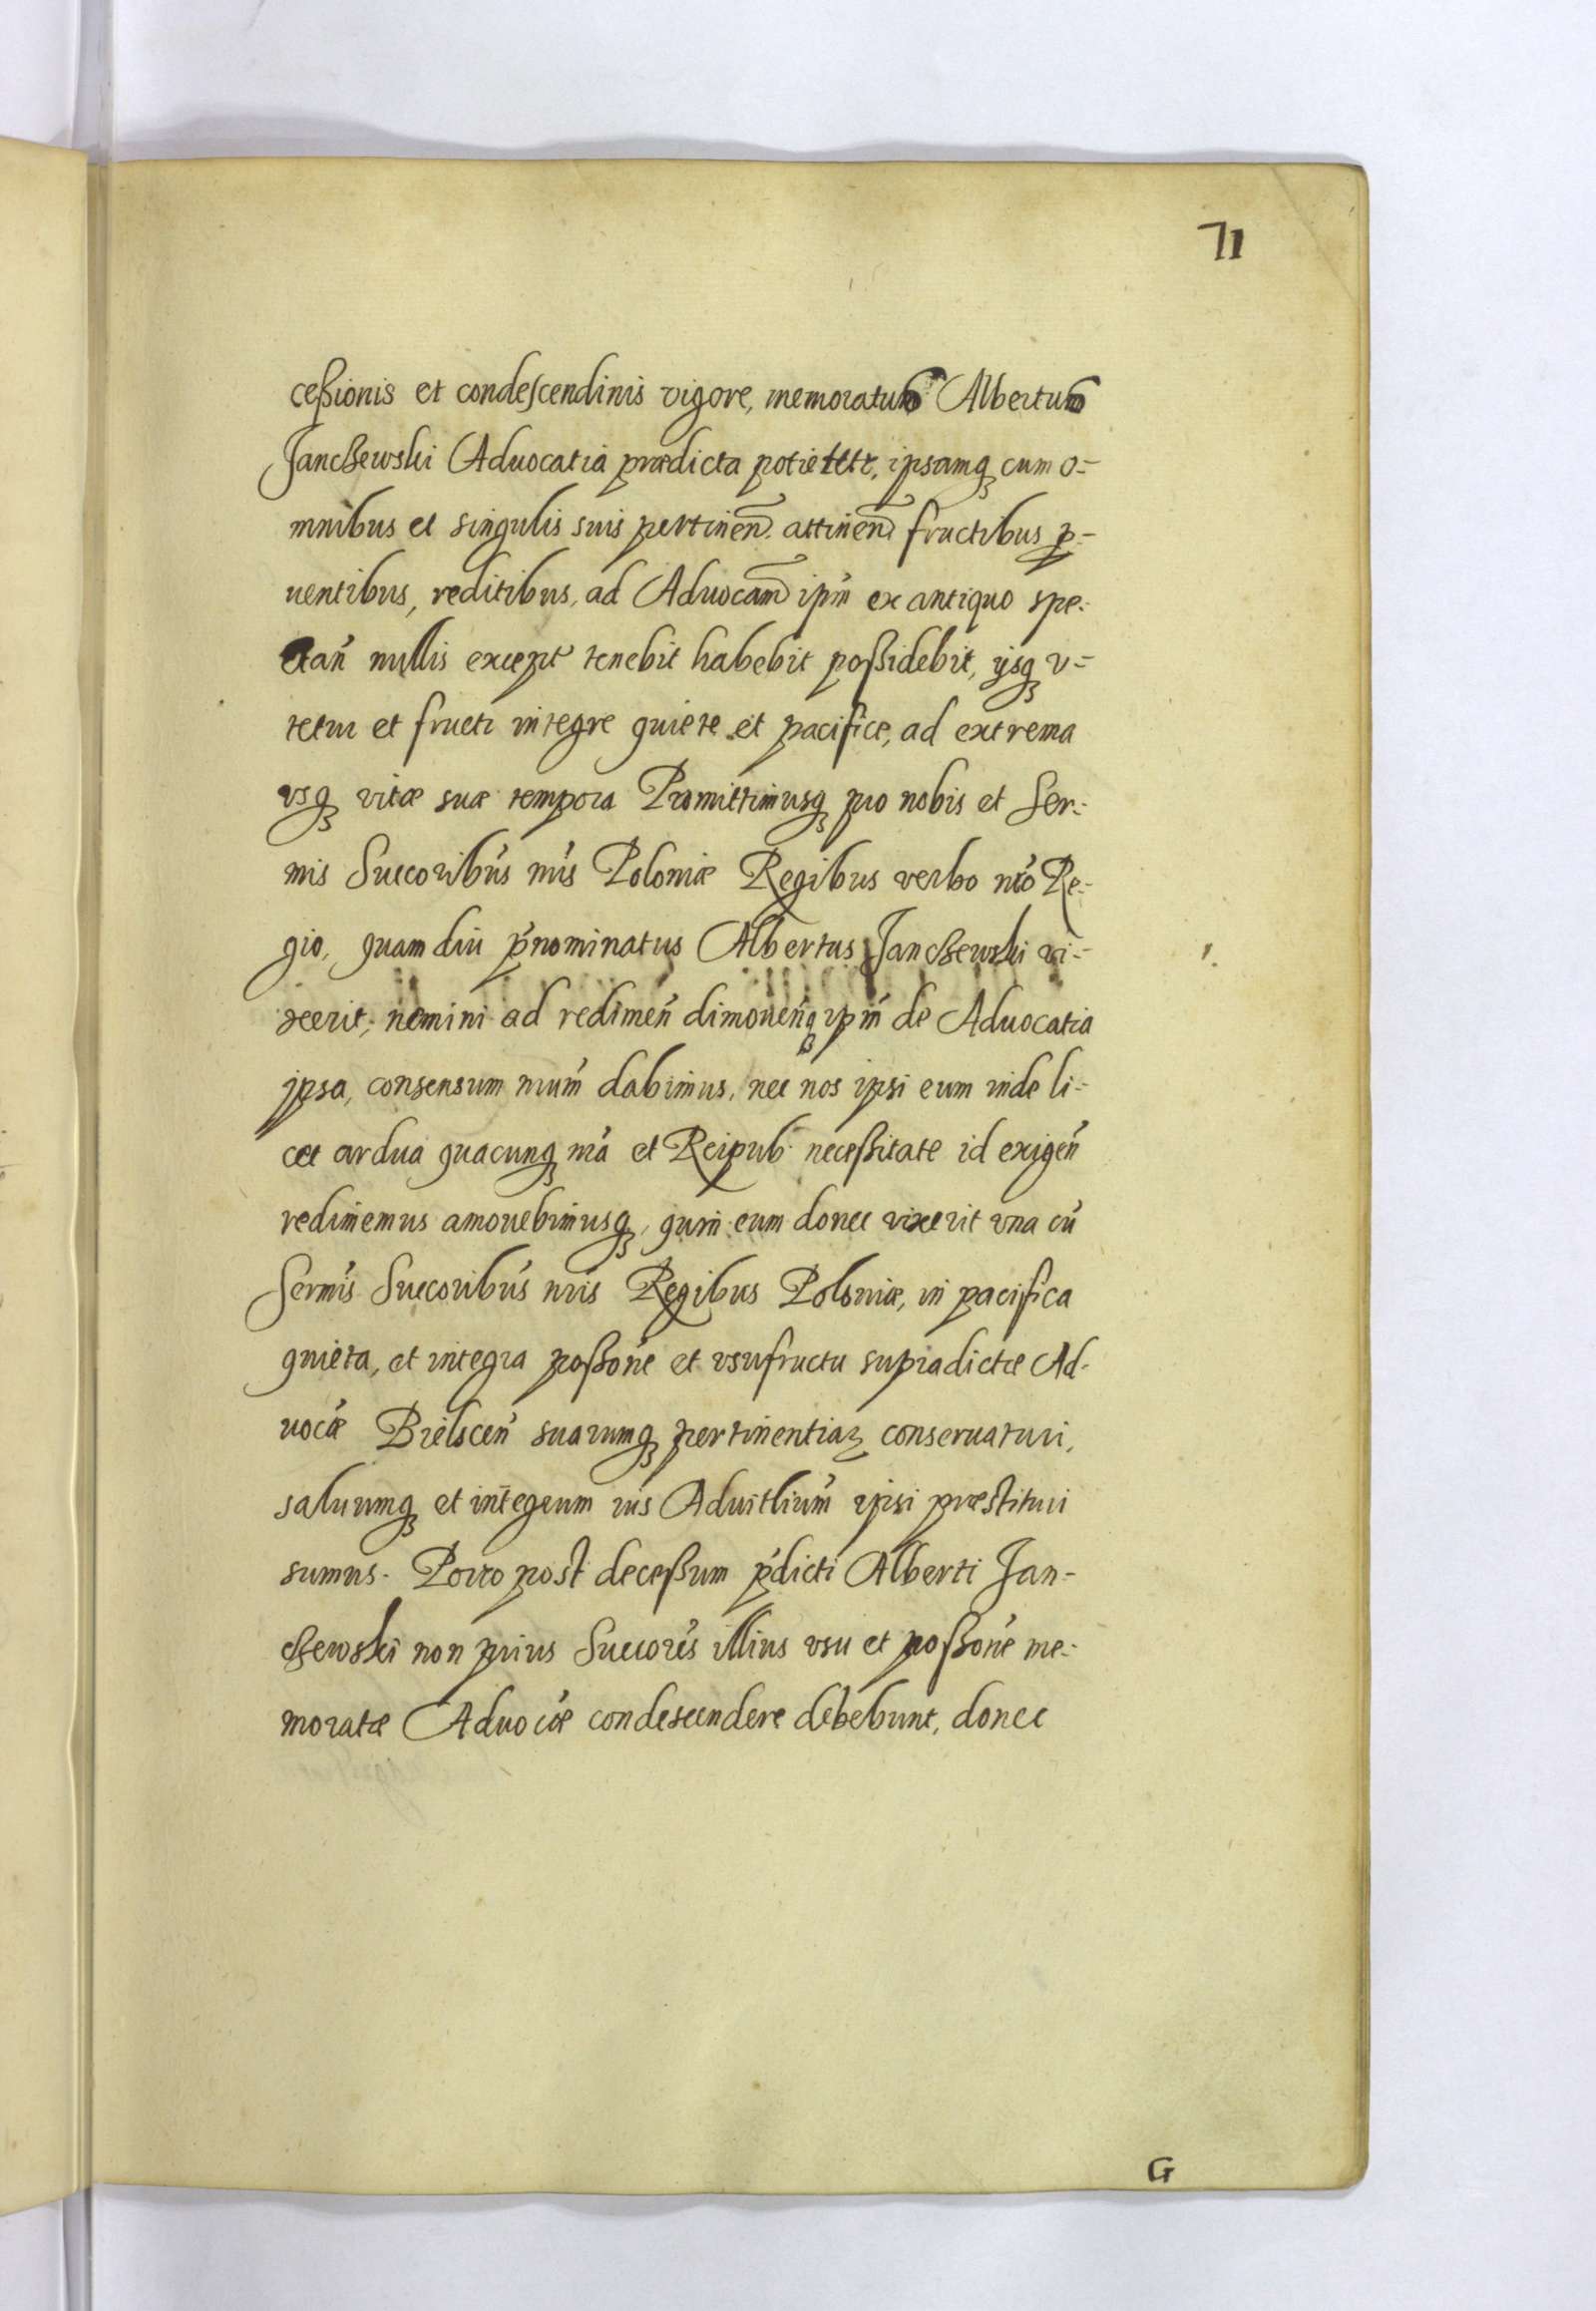 71
ceßionis et condescendinis vigore, memoratus Albertus
Janczewski Aduocatia prædicta potietetr, ipsamq3 cum o=
mnibus et singulis suis pertineñ. attineñ fructibus p=
uentibus, reditibus, ad Aduocam̃ ipm̃ ex antiquo spe:
ctañ nullis except tenebit habebit poßidebit, ijsq3 v=
tetur et fruetr integre quiete et pacifice, ad extrema
vsq3 vitæ suæ tempora Promittimusq3 pro nobis et Ser:
mis Succoribus nris Poloniæ Regibus verbo nro Re:
gio, quam diu p̃nominatus Albertus Janczewski vi=
xerit, nemini ad redimeñ dimoueñq3 ipm̃ de Aduocatia
ipsa, consensum nrum dabimus, nec nos ipsi eum inde li=
cet ardua quacunq3 nra et Reipub: neceßitate id exigeñ
redimemus amouebimusq3, quin eum donec vixerit vna cũ
Sermis Succoribus nris Regibus Poloniæ, in pacifica
quieta, et integra poßone et vsufructu supradictæ Ad-
uocæ Bielsceñ suarumq3 pertinentiaꝝ conseruaturi,
saluumq3 et integrum ius Aduitlium ipsi præstituri
sumus. Porro post deceßum p̃dicti Alberti Jan=
czewski non prius Succores illius vsu et poßone me:
moratæ Aduocæ condescendere debebunt, donec
G